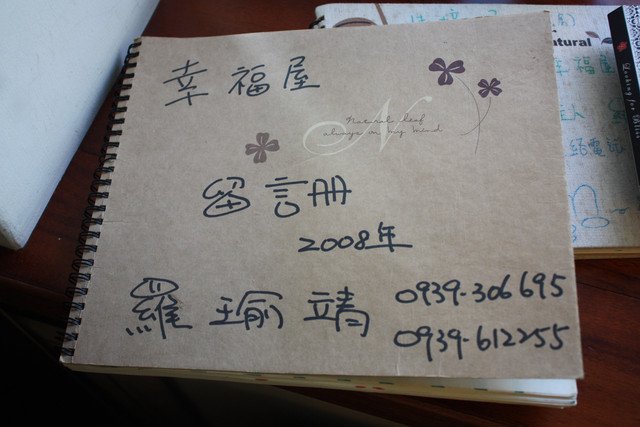 幸福屋
Natural leaf
always on my mind
N
留言册
2008年
羅瑜靖 0939-306695
0939-612255
atural
幸福屋